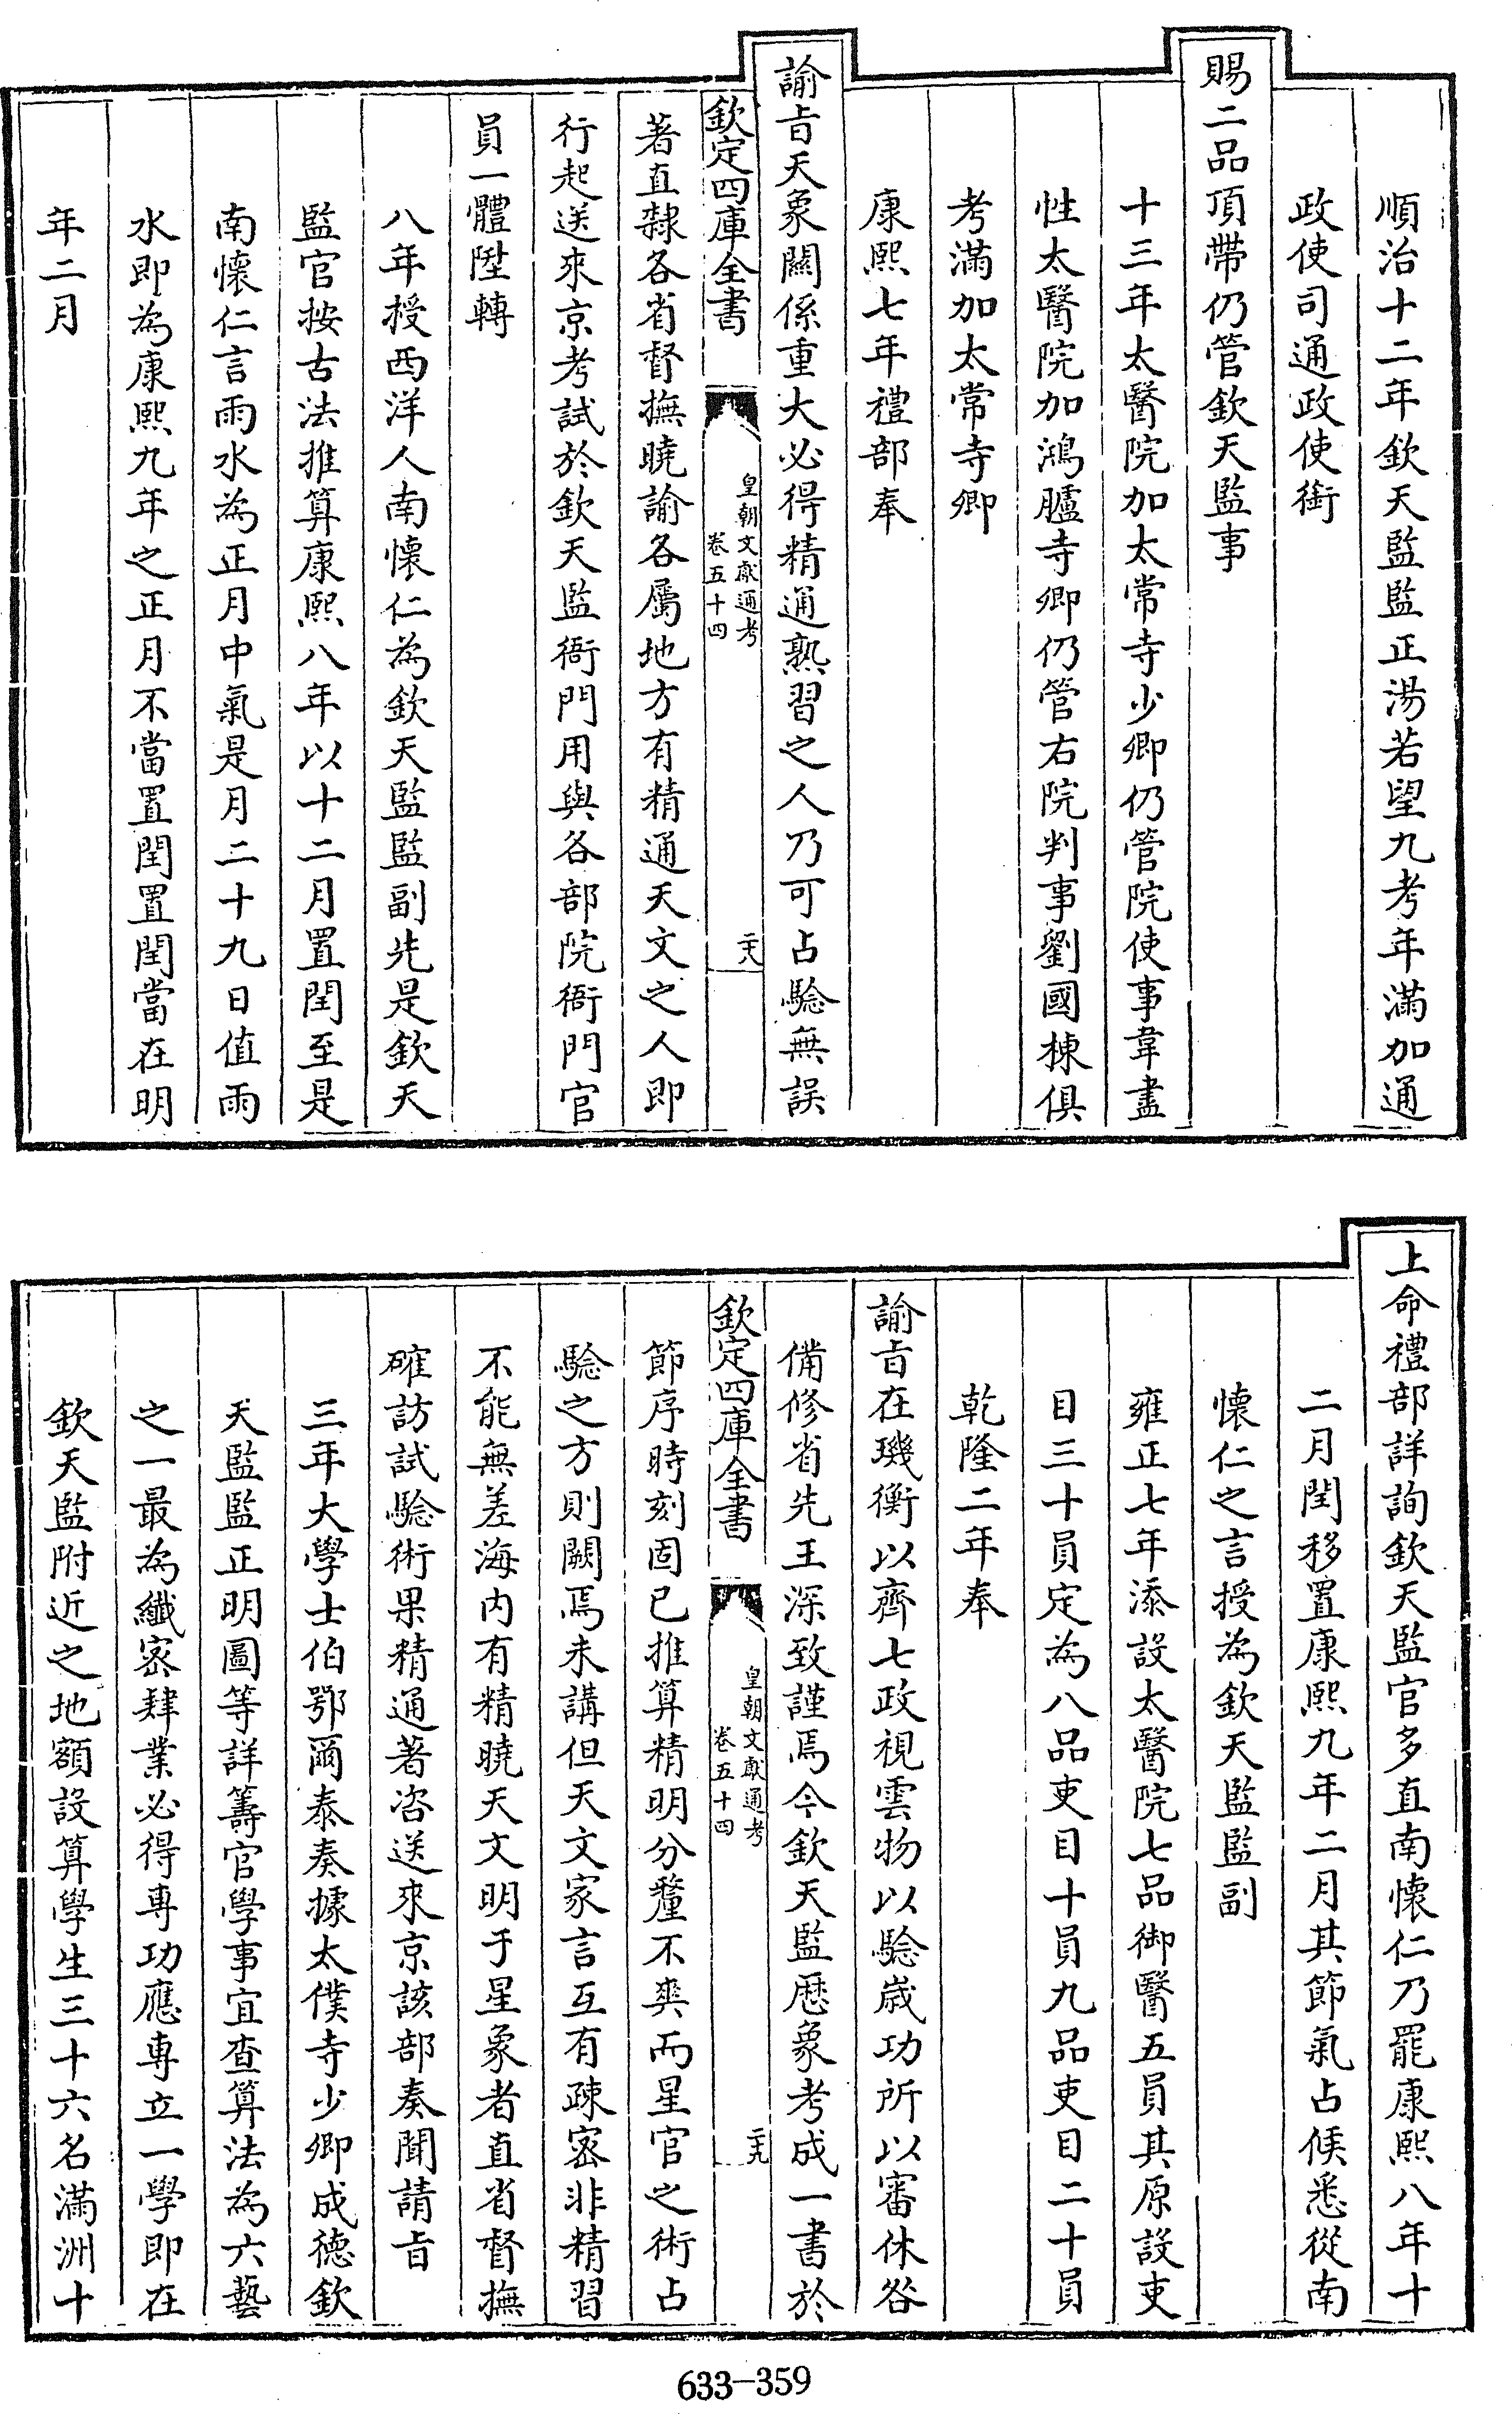 順治十二年欽天監監正湯若望九考年滿加通
政使司通政使銜
賜二品頂帶仍管欽天監事
十三年太醫院加太常寺少卿仍管院使事韋盡
性太醫院加鴻臚寺卿仍管右院判事劉國棟俱
考滿加太常寺卿
康熙七年禮部奉
諭旨天象關係重大必得精通熟習之人乃可占驗無誤
欽定四庫全書
皇朝文獻通考
卷五十四
二十八
著直隸各省督撫曉諭各屬地方有精通天文之人即
行起送來京考試於欽天監衙門用與各部院衙門官
員一體陞轉
八年授西洋人南懷仁為欽天監監副先是欽天
監官按古法推算康熙八年以十二月置閏至是
南懷仁言雨水為正月中氣是月二十九日值雨
水即為康熙九年之正月不當置閏置閏當在明
年二月
上命禮部詳詢欽天監官多直南懷仁乃罷康熙八年十
二月閏移置康熙九年二月其節氣占候悉從南
懷仁之言授為欽天監監副
雍正七年添設太醫院七品御醫五員其原設吏
目三十員定為八品吏目十員九品吏目二十員
乾隆二年奉
諭旨在璣衡以齊七政視雲物以驗歲功所以審休咎
備修省先王深致謹焉今欽天監厯象考成一書於
欽定四庫全書
皇朝文獻通考
卷五十四
二十九
節序時刻固已推算精明分釐不爽而星官之術占
驗之方則闕焉未講但天文家言互有疎密非精習
不能無差海內有精曉天文明于星象者直省督撫
確訪試驗術果精通著咨送來京該部奏聞請旨
三年大學士伯鄂爾泰奏據太僕寺少卿成德欽
天監監正明圖等詳籌官學事宜查算法為六藝
之一最為纖密肄業必得專功應專立一學即在
欽天監附近之地額設算學生三十六名滿洲十
633-359